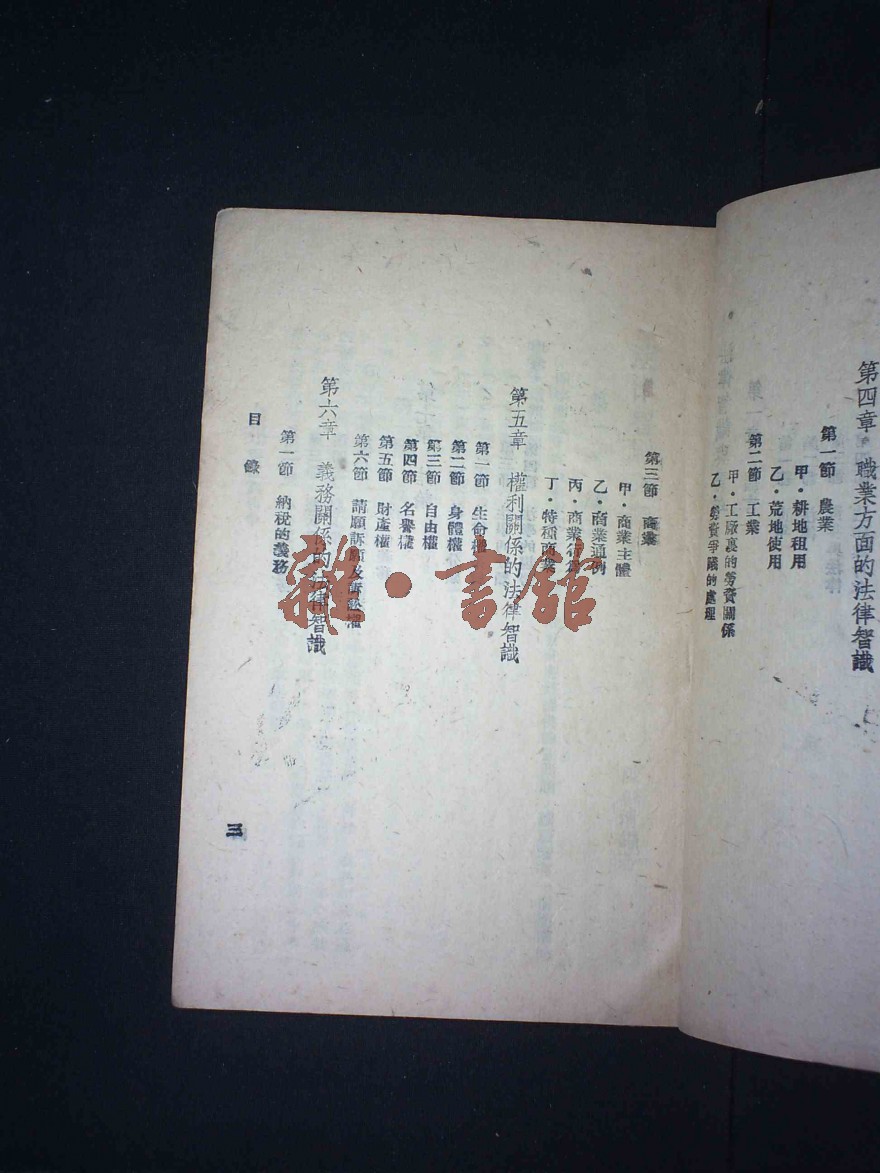 第四章 職業方面的法律智識
第一節 農業
甲·耕地租用
乙·荒地使用
第二節 工業
甲·工廠裏的勞資關係
乙·勞資爭議的處理
第三節 商業
甲·商業主體
乙·商業通例
丙·商業行爲
丁·特種商業
第五章 權利關係的法律智識
第一節 生命權
第二節 身體權
第三節 自由權
第四節 名譽權
第五節 財產權
第六節 請願訴願及訴訟權
第六章 義務關係的法律智識
第一節 納稅的義務
目錄
三
雜·書館